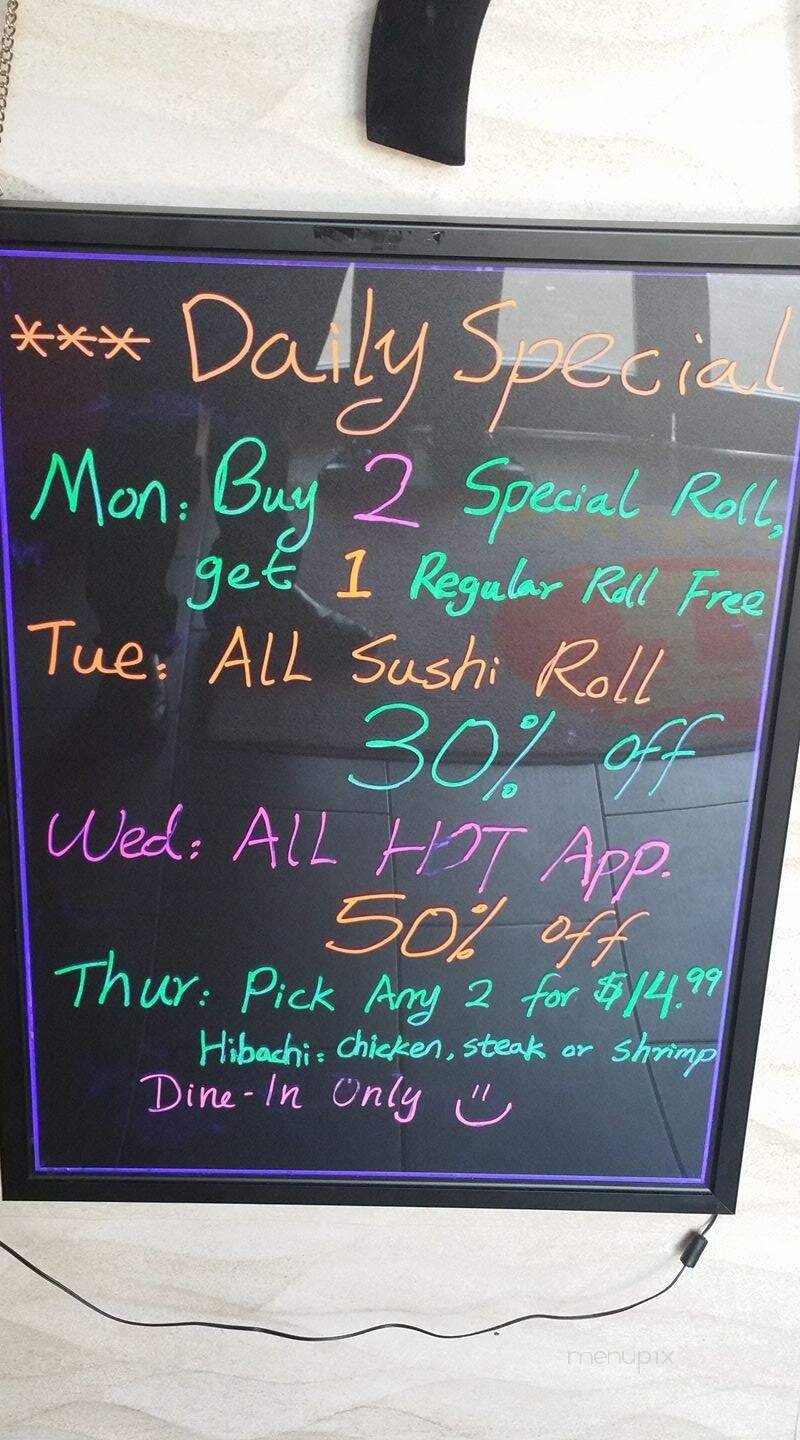 *** Daily Special
Mon: Buy 2 Special Roll,
get 1 Regular Roll Free
Tue: ALL Sushi Roll
30% off
Wed: ALL HOT App.
50% off
Thur: Pick Any 2 for $14.99
Hibachi: chicken, steak or shrimp
Dine-In Only
menupix